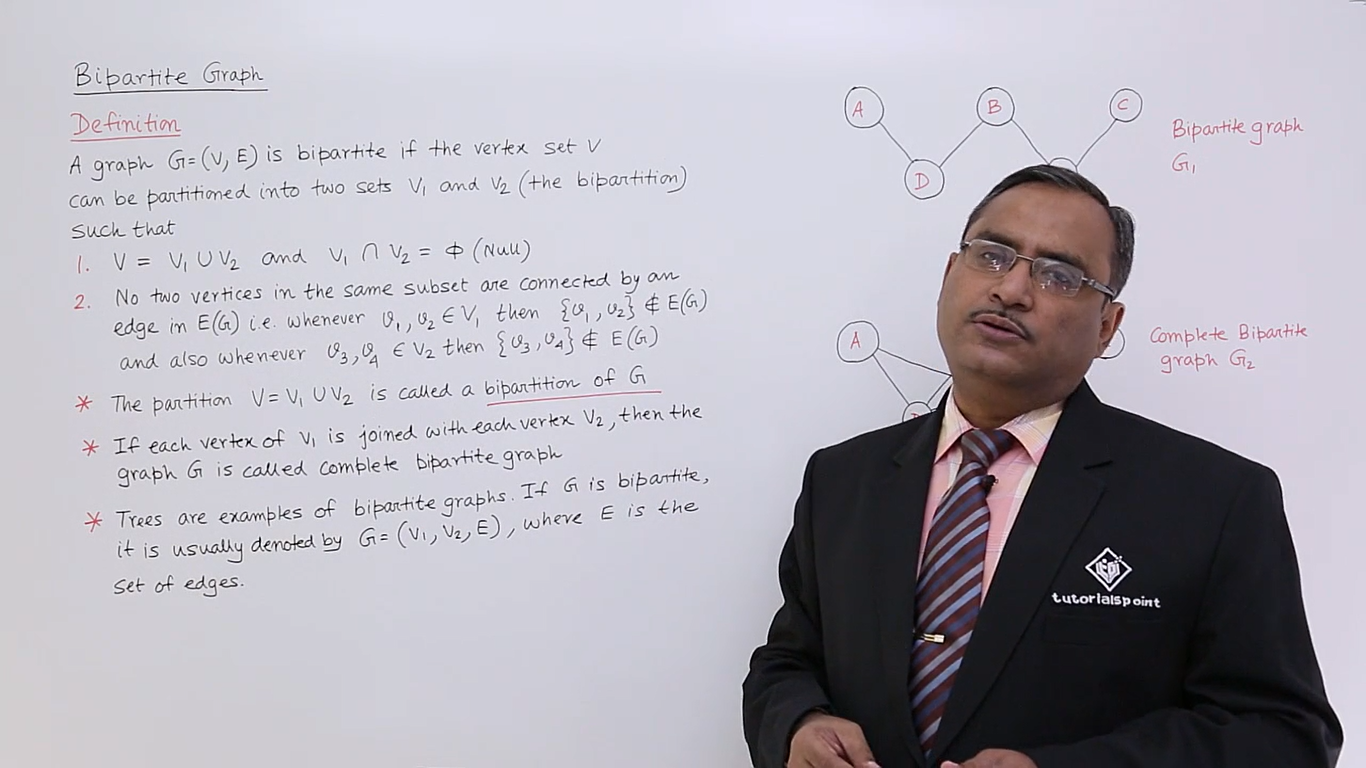 Bipartite Graph
Definition
A graph G=(V, E) is bipartite if the vertex set V
can be partitioned into two sets V₁ and V₂ (the bipartition)
such that
1. V = V₁ ∪ V₂ and V₁ ∩ V₂ = Φ (Null)
2. No two vertices in the same subset are connected by an
edge in E(G) i.e. whenever v₁, v₂ ∈ V₁ then {v₁, v₂} ∉ E(G)
and also whenever v₃, v₄ ∈ V₂ then {v₃, v₄} ∉ E(G)
* The partition V = V₁ ∪ V₂ is called a bipartition of G
* If each vertex of V₁ is joined with each vertex V₂, then the
graph G is called complete bipartite graph
* Trees are examples of bipartite graphs. If G is bipartite,
it is usually denoted by G = (V₁, V₂, E), where E is the
set of edges.
A B C
D
Bipartite graph
G₁
A
Complete Bipartite
graph G₂
tutorialspoint